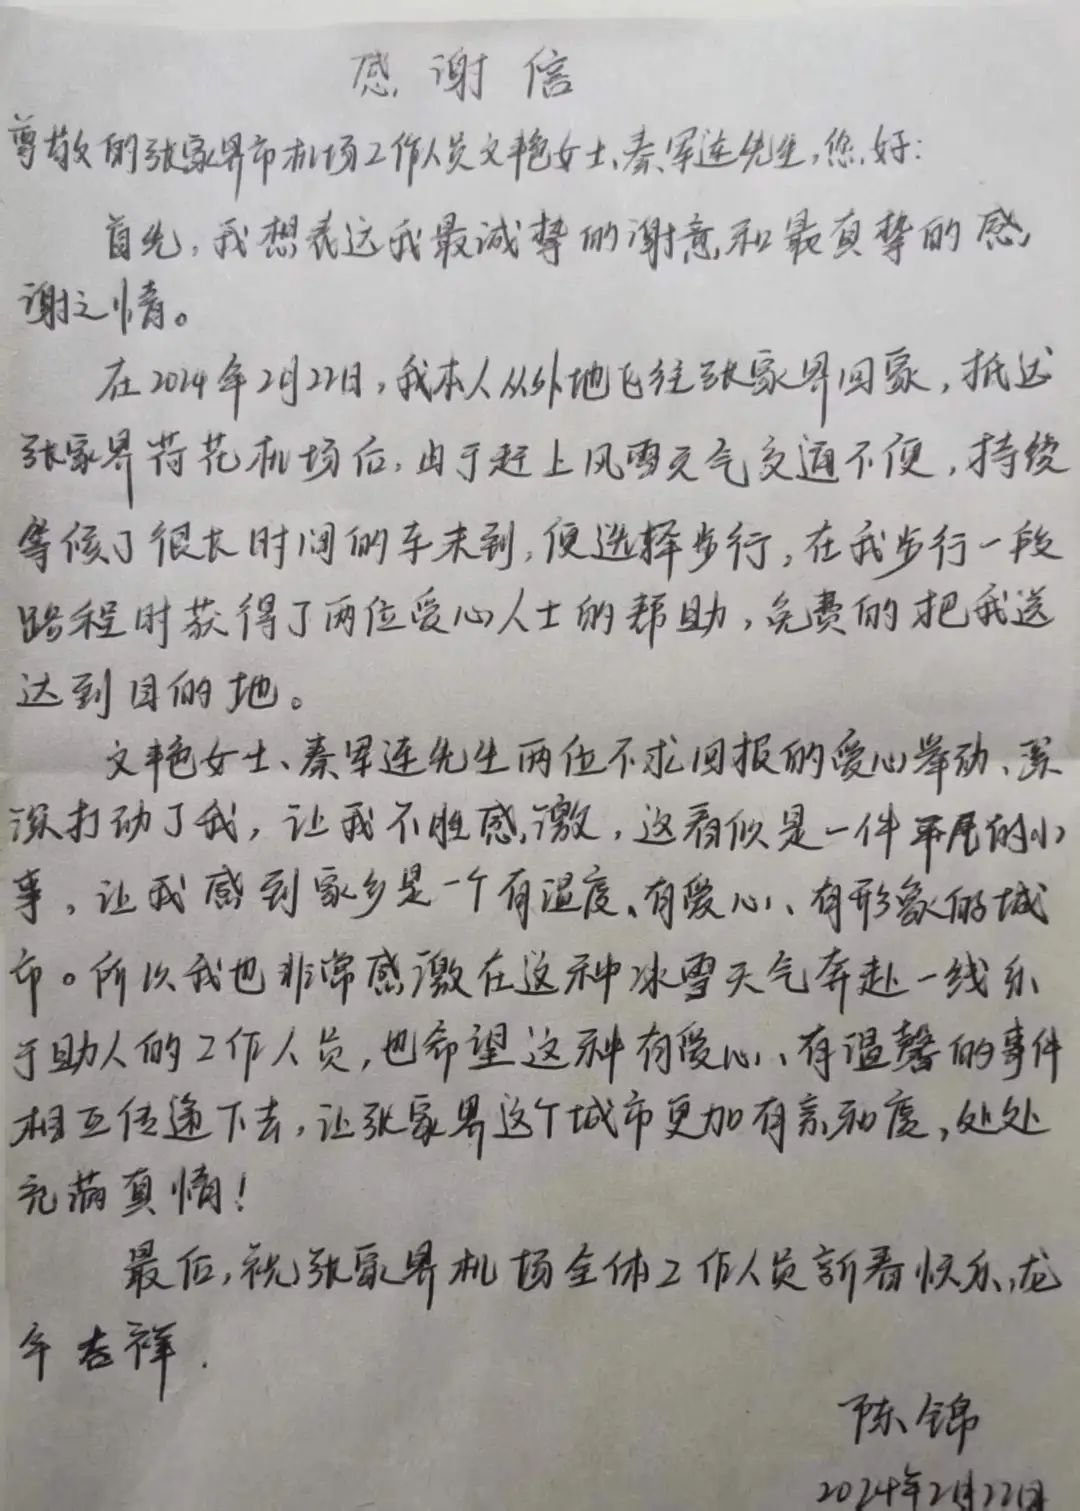 感谢信
尊敬的张家界市机场工作人员文艳女士、秦军连先生,您好:
首先,我想表达我最诚挚的谢意和最真挚的感
谢之情。
在2024年2月22日,我本人从外地飞往张家界回家,抵达
张家界荷花机场后,由于赶上风雪天气交通不便,持续
等候了很长时间的车未到,便选择步行,在我步行一段
路程时获得了两位爱心人士的帮助,免费的把我送
达到目的地。
文艳女士、秦军连先生两位不求回报的爱心举动、深
深打动了我,让我不胜感激,这看似是一件平凡的小
事,让我感到家乡是一个有温度、有爱心、有形象的城
市。所以我也非常感激在这种冰雪天气奔赴一线乐
于助人的工作人员,也希望这种有爱心、有温馨的事件
相互传递下去,让张家界这个城市更加有亲和度,处处
充满真情!
最后,祝张家界机场全体工作人员新春快乐,龙
年吉祥.
陈锦
2024年2月22日